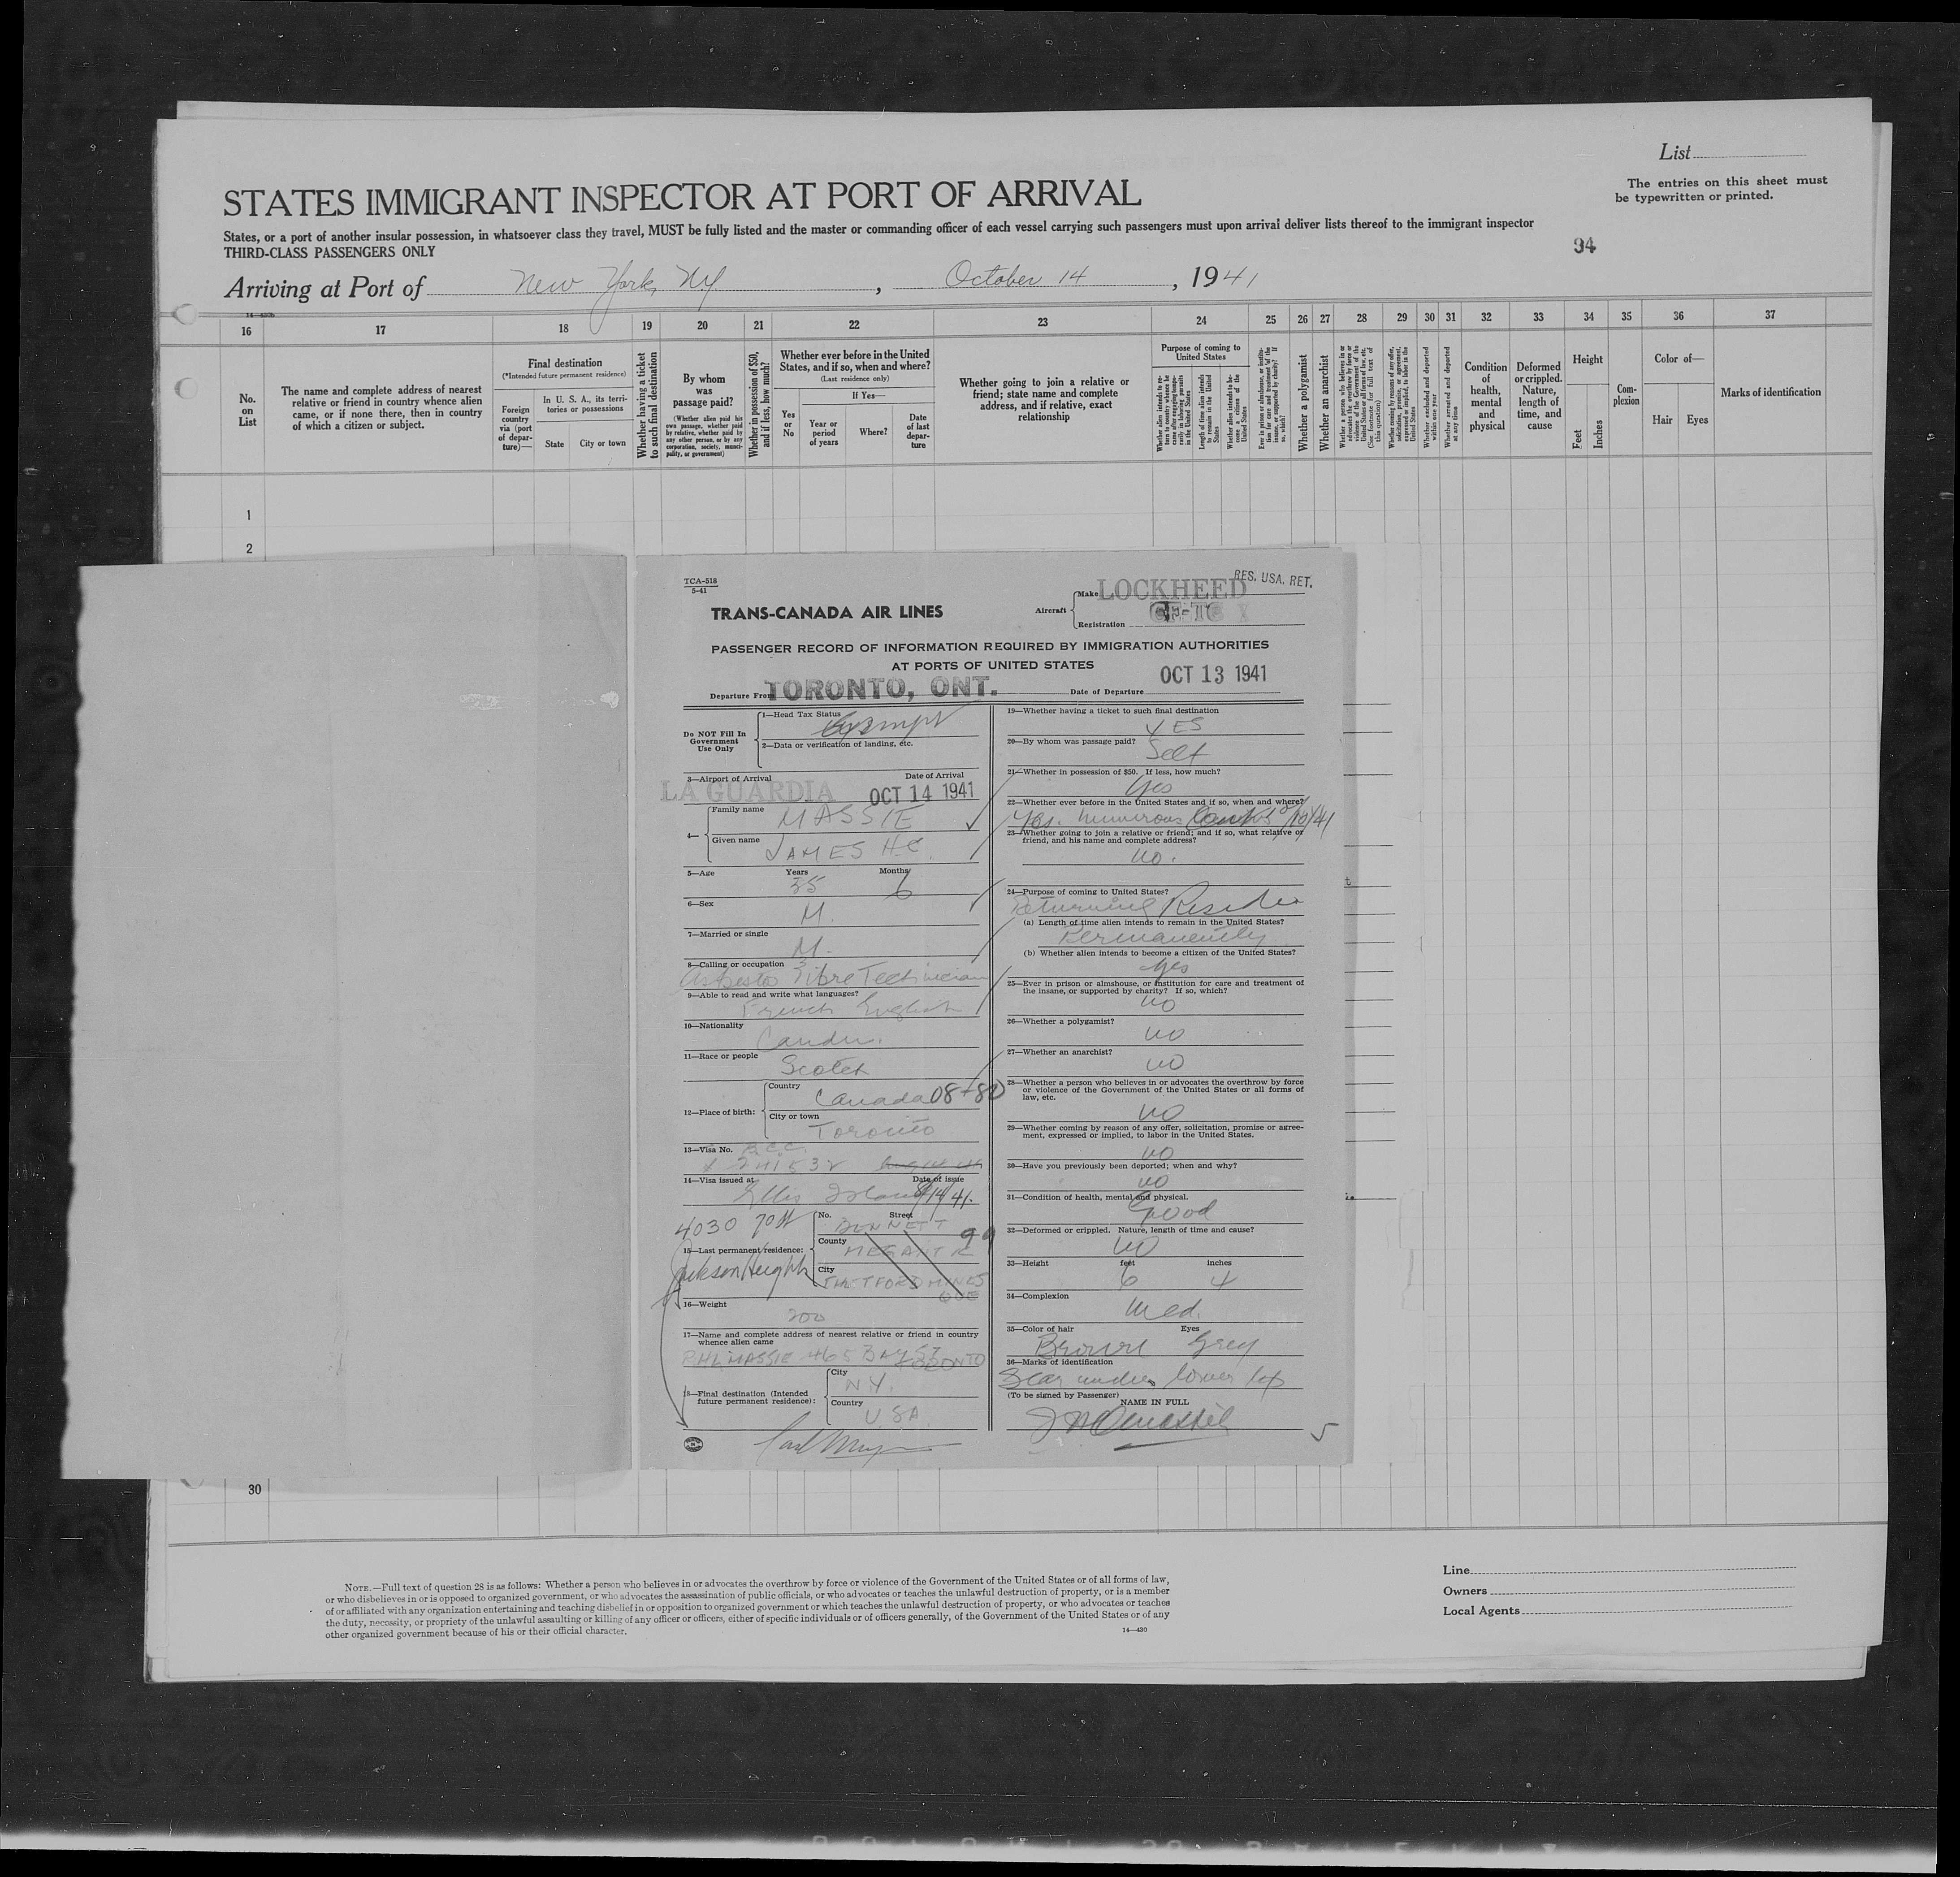 List
The entries on this sheet must
be typewritten or printed.
STATES IMMIGRANT INSPECTOR AT PORT OF ARRIVAL
States, or a port of another insular possession, in whatsoever class they travel, MUST be fully listed and the master or commanding officer of each vessel carrying such passengers must upon arrival deliver lists thereof to the immigrant inspector
THIRD-CLASS PASSENGERS ONLY
94
Arriving at Port of New York, N.Y. , October 14 , 1941
16 17 18 19 20 21 22 23 24 25 26 27 28 29 30 31 32 33 34 35 36 37
No.
on
List
The name and complete address of nearest
relative or friend in country whence alien
came, or if none there, then in country
of which a citizen or subject.
Final destination
(*Intended future permanent residence)
Foreign
country
via (port
of depar-
ture)—
In U. S. A., its terri-
tories or possessions
State
City or town
Whether having a ticket
to such final destination
By whom
was
passage paid?
(Whether alien paid his
own passage, whether paid
by relative, whether paid by
any other person, or by any
corporation, society, munici-
pality, or government)
Whether in possession of $50,
and if less, how much?
Whether ever before in the United
States, and if so, when and where?
(Last residence only)
Yes
or
No
If Yes—
Year or
period
of years
Where?
Date
of last
depar-
ture
Whether going to join a relative or
friend; state name and complete
address, and if relative, exact
relationship
Purpose of coming to
United States
Length of time alien intends
to remain in the United
States
Whether a polygamist
Whether an anarchist
Whether excluded and deported
within one year
Whether arrested and deported
at any time
Condition
of
health,
mental
and
physical
Deformed
or crippled.
Nature,
length of
time, and
cause
Height
Feet
Inches
Com-
plexion
Color of—
Hair
Eyes
Marks of identification
1
2
30
TCA-518
5-41
TRANS-CANADA AIR LINES
Aircraft
Make LOCKHEED
RES. USA. RET.
Registration
PASSENGER RECORD OF INFORMATION REQUIRED BY IMMIGRATION AUTHORITIES
AT PORTS OF UNITED STATES
Departure From TORONTO, ONT. Date of Departure OCT 13 1941
Do NOT Fill In
Government
Use Only
1—Head Tax Status Exempt
2—Data or verification of landing, etc.
3—Airport of Arrival Date of Arrival
LA GUARDIA OCT 14 1941
4—
Family name
MASSIE
Given name
JAMES H.C.
5—Age Years Months
35 6
6—Sex
M.
7—Married or single
M.
8—Calling or occupation
Asbestos Fibre Technician
9—Able to read and write what languages?
French English
10—Nationality
Candn.
11—Race or people
Scotch
12—Place of birth:
Country
Canada 08+80
City or town
Toronto
13—Visa No. B.C.C.
241532
14—Visa issued at Date of issue
Ellis Island 8/14/41.
4030 70 St
Jackson Heights
15—Last permanent residence:
No. Street
BENNETT
County
MEGANTIC
99
City
THETFORD MINES
QUE
16—Weight
200
17—Name and complete address of nearest relative or friend in country
whence alien came
R.H.L. MASSIE 465 BAY ST
TORONTO
18—Final destination (Intended
future permanent residence):
City
N.Y.
Country
U.S.A.
19—Whether having a ticket to such final destination
YES
20—By whom was passage paid?
Self
21—Whether in possession of $50. If less, how much?
Yes
22—Whether ever before in the United States and if so, when and where?
Yes. numerous
23—Whether going to join a relative or friend; and if so, what relative or
friend, and his name and complete address?
no.
24—Purpose of coming to United States?
Returning
(a) Length of time alien intends to remain in the United States?
Permanently
(b) Whether alien intends to become a citizen of the United States?
yes
25—Ever in prison or almshouse, or institution for care and treatment of
the insane, or supported by charity? If so, which?
no
26—Whether a polygamist?
no
27—Whether an anarchist?
no
28—Whether a person who believes in or advocates the overthrow by force
or violence of the Government of the United States or all forms of
law, etc.
no
29—Whether coming by reason of any offer, solicitation, promise or agree-
ment, expressed or implied, to labor in the United States.
no
30—Have you previously been deported; when and why?
no
31—Condition of health, mental and physical.
Good
32—Deformed or crippled. Nature, length of time and cause?
no
33—Height feet inches
6 4
34—Complexion
Med.
35—Color of hair Eyes
Brown Grey
36—Marks of identification
Scar under lower lip
(To be signed by Passenger)
NAME IN FULL
J H C Massie
5
NOTE.—Full text of question 28 is as follows: Whether a person who believes in or advocates the overthrow by force or violence of the Government of the United States or of all forms of law,
or who disbelieves in or is opposed to organized government, or who advocates the assassination of public officials, or who advocates or teaches the unlawful destruction of property, or is a member
of or affiliated with any organization entertaining and teaching disbelief in or opposition to organized government or which teaches the unlawful destruction of property, or who advocates or teaches
the duty, necessity, or propriety of the unlawful assaulting or killing of any officer or officers, either of specific individuals or of officers generally, of the Government of the United States or of any
other organized government because of his or their official character.
14—430
Line
Owners
Local Agents